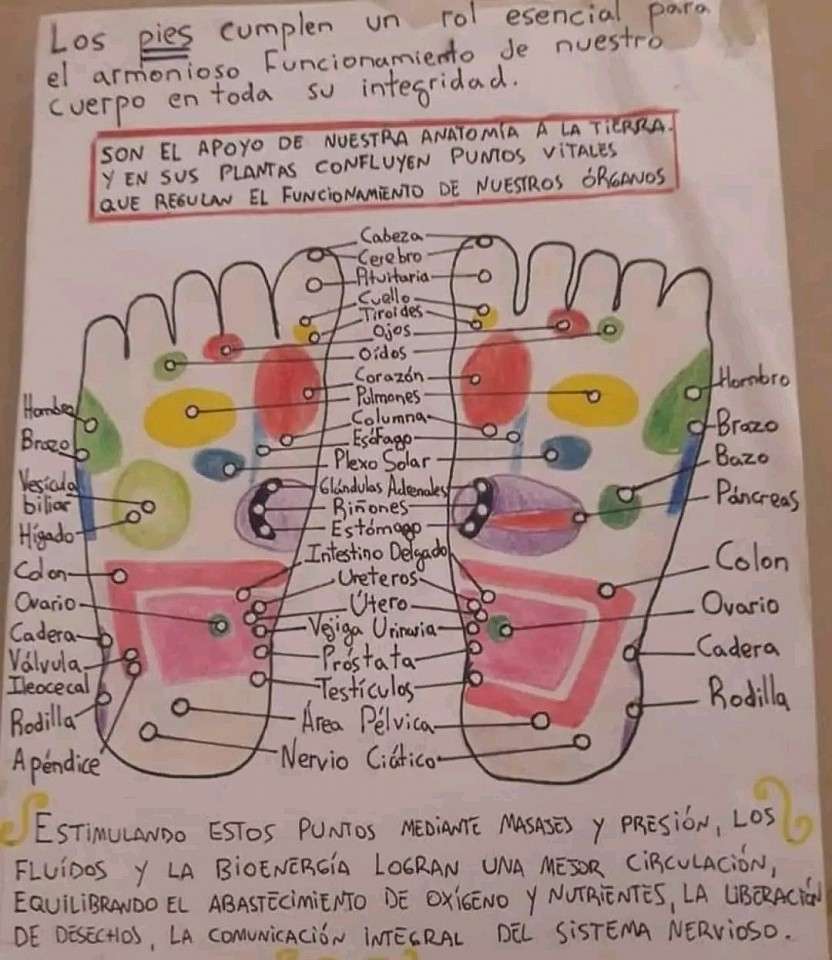 Los pies cumplen un rol esencial para
el armonioso Funcionamiento de nuestro
cuerpo en toda su integridad.
SON EL APOYO DE NUESTRA ANATOMÍA A LA TIERRA.
Y EN SUS PLANTAS CONFLUYEN PUNTOS VITALES
QUE REGULAN EL FUNCIONAMIENTO DE NUESTROS ÓRGANOS
Cabeza
Cerebro
Pituitaria
Cuello
Tiroides
Ojos
Oídos
Corazón
Pulmones
Columna
Esófago
Plexo Solar
Glándulas Adrenales
Riñones
Estómago
Intestino Delgado
Ureteros
Útero
Vejiga Urinaria
Próstata
Testículos
Área Pélvica
Nervio Ciático
Hombro
Brazo
Vesícula
biliar
Hígado
Colon
Ovario
Cadera
Válvula
Ileocecal
Rodilla
Apéndice
Hombro
Brazo
Bazo
Páncreas
Colon
Ovario
Cadera
Rodilla
ESTIMULANDO ESTOS PUNTOS MEDIANTE MASAJES Y PRESIÓN, LOS
FLUÍDOS Y LA BIOENERGÍA LOGRAN UNA MEJOR CIRCULACIÓN,
EQUILIBRANDO EL ABASTECIMIENTO DE OXÍGENO Y NUTRIENTES, LA LIBERACIÓN
DE DESECHOS, LA COMUNICACIÓN INTEGRAL DEL SISTEMA NERVIOSO.